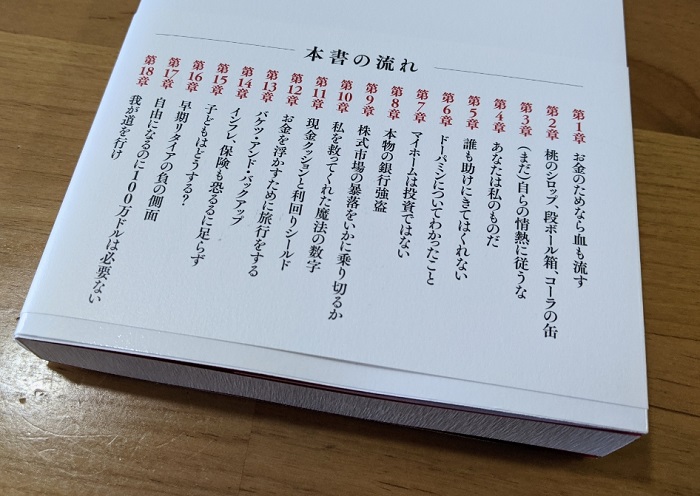 本書の流れ
第1章 お金のためなら血も流す
第2章 桃のシロップ、段ボール箱、コーラの缶
第3章 （まだ）自らの情熱に従うな
第4章 あなたは私のものだ
第5章 誰も助けにきてはくれない
第6章 ドーパミンについてわかったこと
第7章 マイホームは投資ではない
第8章 本物の銀行強盗
第9章 株式市場の暴落をいかに乗り切るか
第10章 私を救ってくれた魔法の数字
第11章 現金クッションと利回りシールド
第12章 お金を浮かすために旅行をする
第13章 バケツ・アンド・バックアップ
第14章 インフレ、保険も恐るるに足らず
第15章 子どもはどうする？
第16章 早期リタイアの負の側面
第17章 自由になるのに100万ドルは必要ない
第18章 我が道を行け